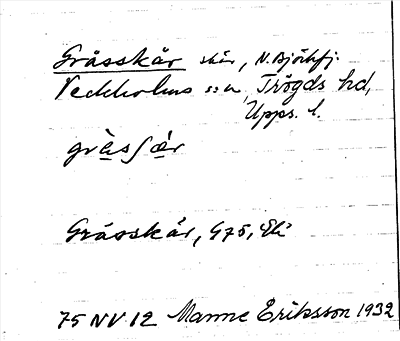 Gråsskär skär, N. Björkfj.
Veckholms sn, Trögds hd,
Upps. l.
grà̱sʃæ̱r
Gråsskär, G75, Ek
75 NV 12 Manne Eriksson 1932